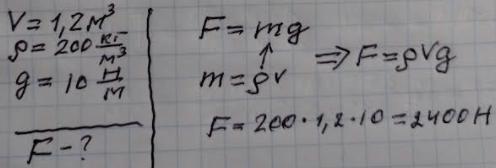 V = 1,2 м³
ρ = 200 кг/м³
g = 10 Н/м
F - ?
F = mg
↑
m = ρv
⇒ F = ρVg
F = 200 · 1,2 · 10 = 2400 Н